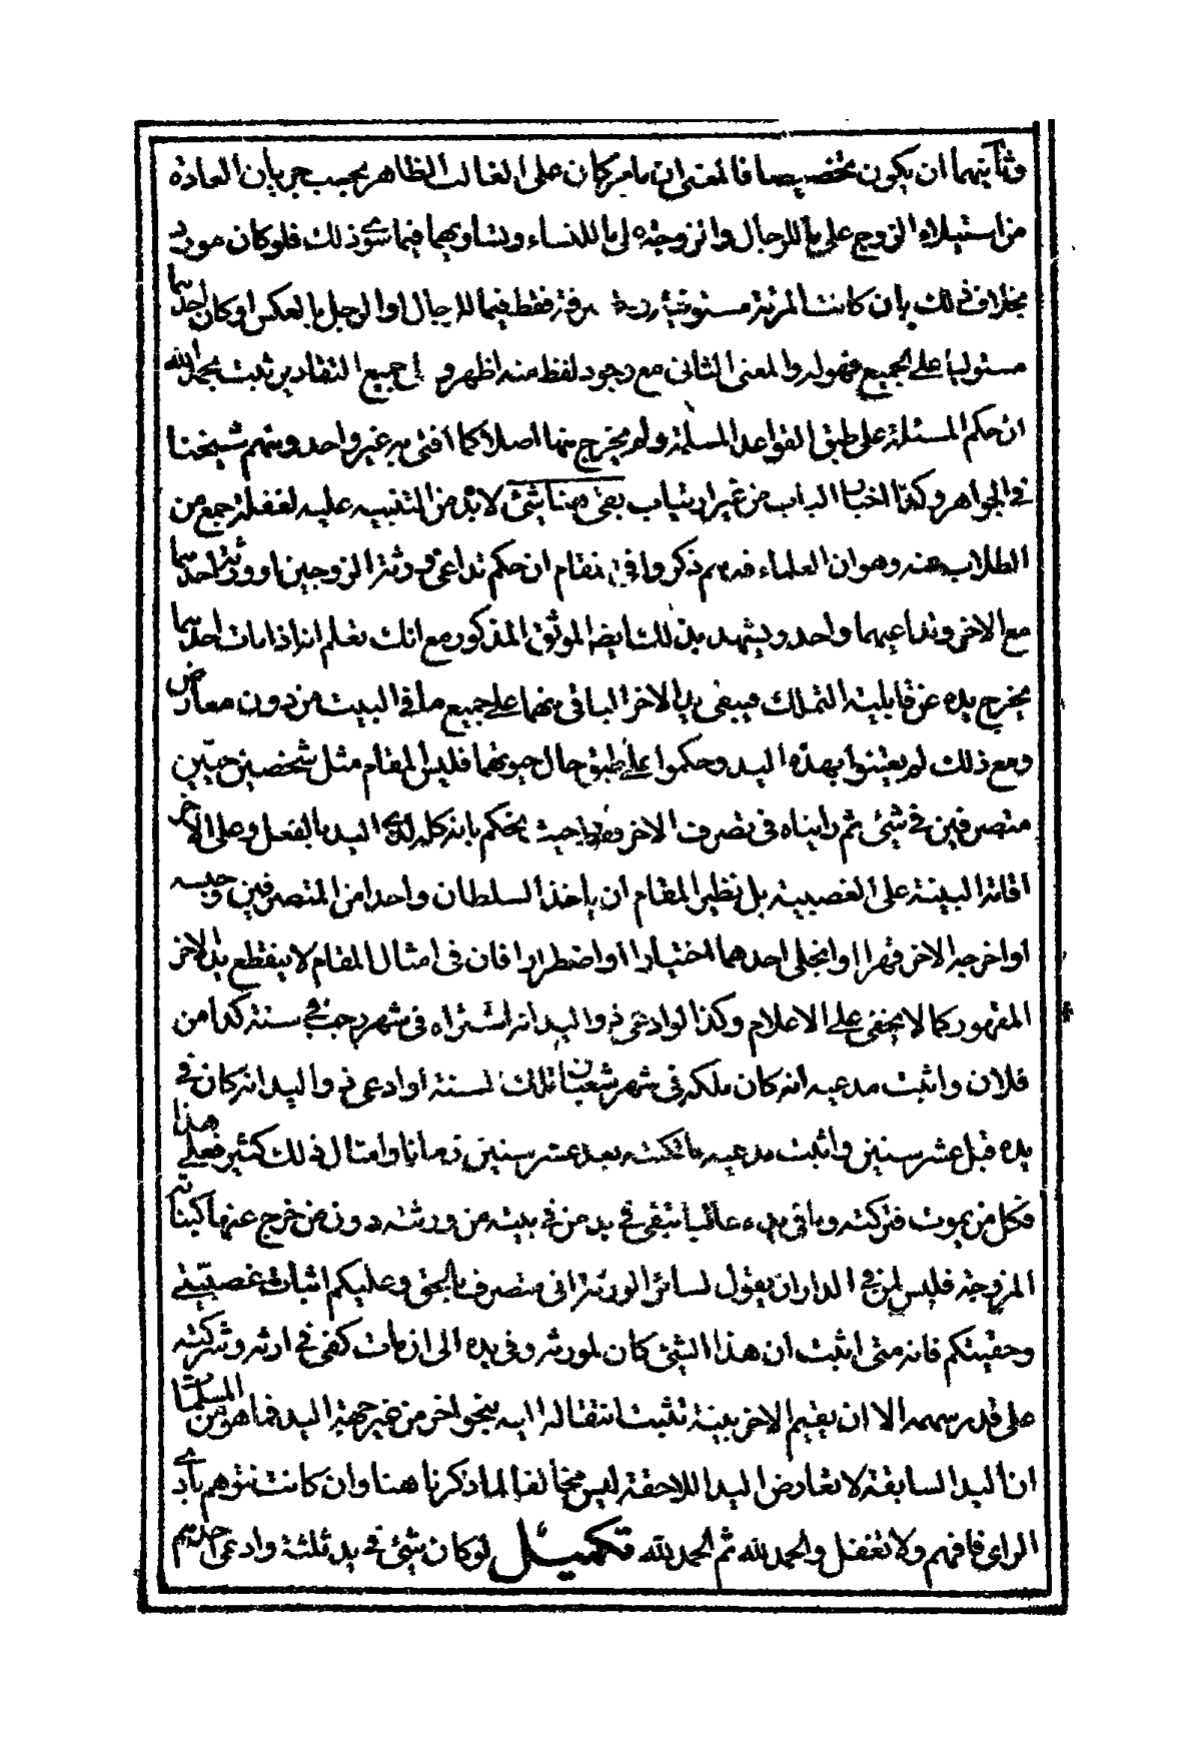 وثانيتهما ان يكون تخصيصا فالمعنى ان ما مر كان على الغالب الظاهر بحسب جريان العادة
من استيلاء الزوج على ما للرجال والزوجة لما للنساء وتساويهما فيما سوى ذلك فلو كان مورد
بخلاف ذلك بان كانت المرئة مستولية فقط فيما للرجال او الرجل بالعكس او كان احدهما
مستوليا على الجميع فهو له والمعنى الثانى مع وجود لفظ منه اظهر و جميع التقادير ثبت بحمد الله
ان حكم المسئلة على طبق القواعد المسلمة ولم يخرج منها اصلا كما افتى به غير واحد ومنهم شيخنا
فى الجواهر وكذا اخبار الباب من غير ارتياب بقى هنا شئ لا بد من التنبيه عليه لغفلة جمع من
الطلاب عنه وهو ان العلماء ذكروا فى المقام ان حكم تداعى ورثة الزوجين او ورثة احدهما
مع الاخر وتداعيهما واحد ويشهد بذلك ايضا الموثق المذكور مع انك تعلم انه اذا مات احدهما
يخرج يده عن قابلية التملك فيبقى يد الاخر الباقى منهما على جميع ما فى البيت من دون معارض
ومع ذلك لم يعتنوا بهذه اليد وحكموا على طبق حال حيوتهما فليس المقام مثل شخصين حيين
متصرفين فى شئ ثم رايناه فى تصرف الاخر حيث يحكم بانه كله لذى اليد بالفعل وعلى الاخر
اقامة البينة على الغصبية بل نظير المقام ان ياخذ السلطان واحدا من المتصرفين وحبسه
او اخرجه الاخر قهرا او انجلى احدهما اختيارا او اضطرارا فان فى امثال المقام لا ينقطع يد الاخر
المقهور كما لا يخفى على الاعلام وكذا لو ادعى ذو اليد انه اشتراه فى شهر رجب فى سنة كذا من
فلان واثبت مدعيه انه كان ملكه فى شهر شعبان تلك السنة او ادعى ذو اليد انه كان فى
يده قبل عشر سنين واثبت مدعيه مالكيته بعد عشر سنين زمانا وامثال ذلك كثير فعلى هذا
فكل من يموت فتركته وما فى يده غالبا تبقى فى يد من فى بيته من ورثته دون من خرج عنها كبناته
المزوجة فليس لمن فى الدار ان يقول لسائر الورثة انى متصرف بالحق وعليكم اثبات غصبيتى
وحقيتكم فانه متى اثبت ان هذا الشئ كان لمورثه وفى يده الى ان مات كفى فى ارثه وشركته
على قدر سهمه الا ان يقيم الاخر بينة تثبت انتقاله اليه بنحو اخر من غير جهة اليد فما هو من المسلمات
ان اليد السابقة لا تعارض اليد اللاحقة ليس مخالفا لما ذكرنا هنا وان كانت تتوهم بادى
الراى فافهم ولا تغفل والحمد لله ثم الحمد لله تكميل لو كان شئ فى يد ثلثة وادعى احدهم